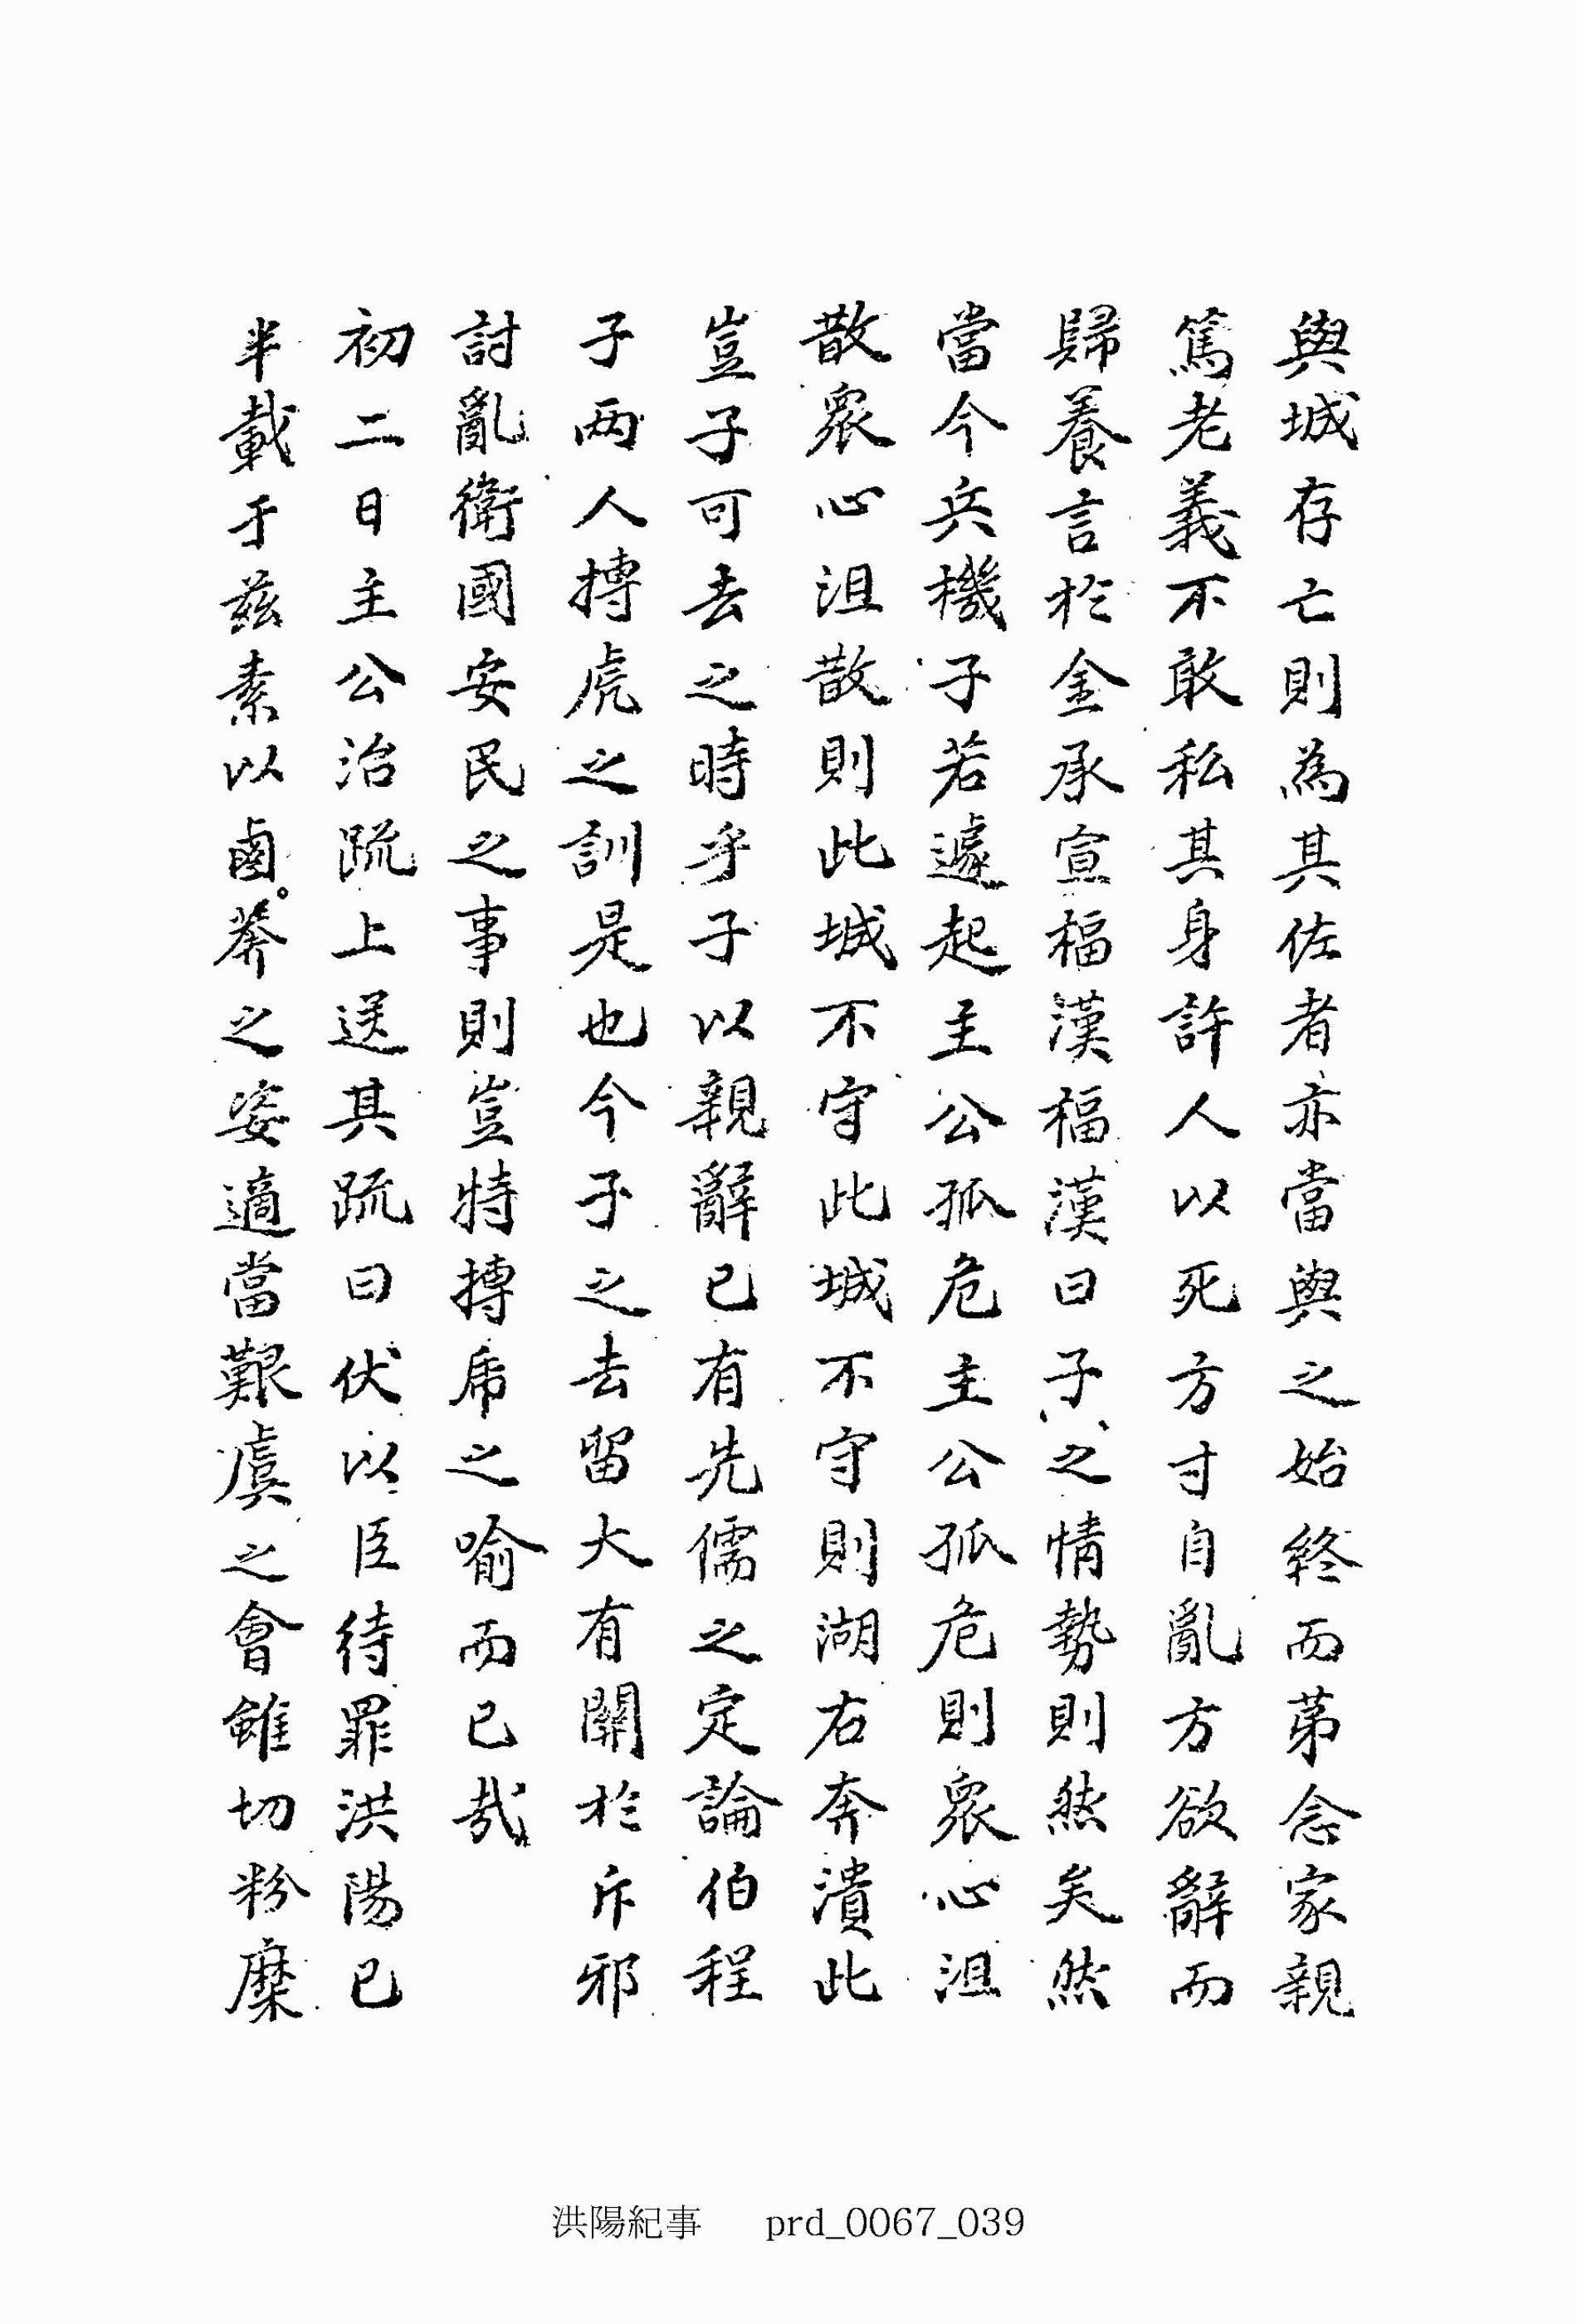 與城存亡則為其佐者亦當與之始終而苐念家親
篤老義不敢私其身許人以死方寸自亂方欲辭而
歸養言於金承宣福漢福漢曰子之情勢則然矣然
當今兵機子若遽起主公孤危主公孤危則衆心沮
散衆心沮散則此城不守此城不守則湖右奔潰此
豈子可去之時乎子以親辭已有先儒之定論伯程
子两人搏虎之訓是也今子之去留大有關於斥邪
討亂衛國安民之事則豈特搏乕之喻而已哉
初二日主公治疏上送其疏曰伏以臣待罪洪陽已
半載于玆素以鹵莽之姿適當艱虞之會雖切粉糜
洪陽紀事 prd_0067_039